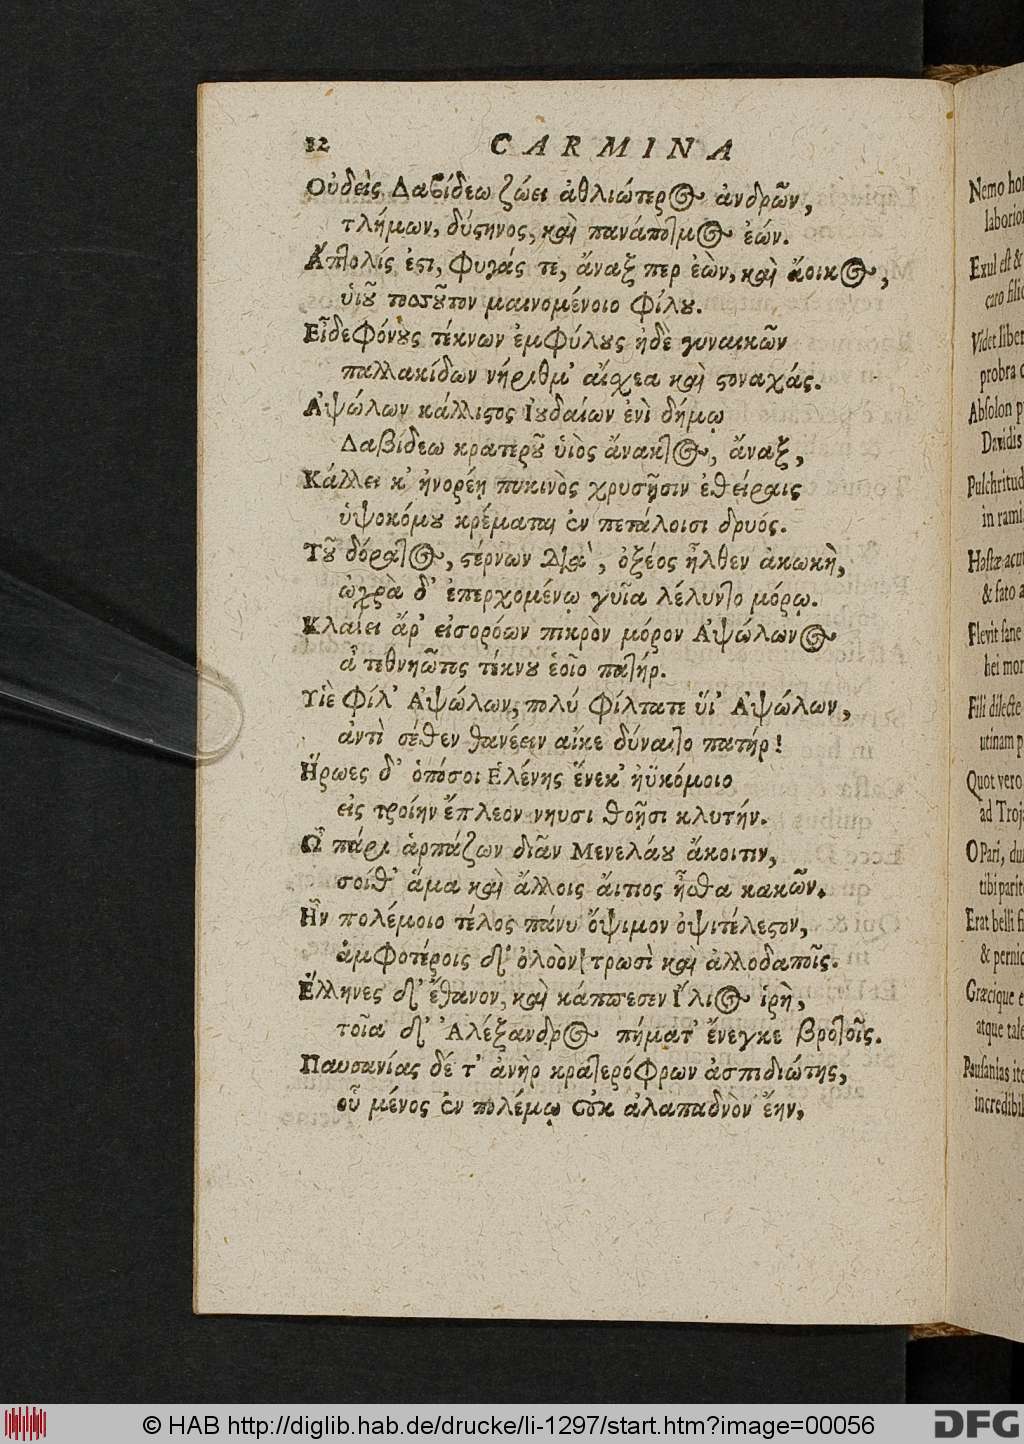 12 CARMINA
Οὐδεὶς Δαβίδεω ζώει ἀθλιώτερος ἀνδρῶν,
τλήμων, δύςηνος, καὶ πανάποτμος ἐών.
Ἄπτολίς ἐςι, φυγάς τε, ἄναξ περ ἐὼν, καὶ ἄοικος,
ὑιοῦ τοσοῦτον μαινομένοιο φίλου.
Εἶδε φόνους τέκνων ἐμφύλους ἠδὲ γυναικῶν
παλλακίδων νήριθμ' αἴσχεα καὶ ςοναχάς.
Ἀψώλων κάλλιςος Ἰουδαίων ἐνὶ δήμῳ
Δαβίδεω κρατεροῦ ὑιὸς ἄνακτος, ἄναξ,
Κάλλει κ' ἠνορέῃ πυκινὸς χρυσῇσιν ἐθείραις
ὑψοκόμου κρέμαται ἐν πετάλοισι δρυός.
Τοῦ δόρατος, ςέρνων διὰ, ὀξέος ἦλθεν ἀκωκὴ,
ὠχρὰ δ' ἐπερχομένῳ γυῖα λέλυντο μόρῳ.
Κλαίει ἄρ' εἰσορόων πικρὸν μόρον Ἀψώλωνος
ἆ τεθνηῶτος τέκνου ἑοῖο πατήρ.
Υἱὲ φίλ' Ἀψώλων, πολύ φίλτατε ὕι' Ἀψώλων,
ἀντὶ σέθεν θανέειν αἴκε δύναιτο πατήρ!
Ἥρωες δ' ὁπόσοι Ἑλένης ἕνεκ' ἠϋκόμοιο
εἰς τροίην ἔπλεον νηυσι θοῇσι κλυτήν.
Ὦ πάρι ἁρπάζων δῖαν Μενελάου ἄκοιτιν,
σοίθ' ἅμα καὶ ἄλλοις αἴτιος ἦσθα κακῶν.
Ἦν πολέμοιο τέλος πάνυ ὄψιμον ὀψιτέλεςον,
ἀμφοτέροις δ' ὀλοὸν τρωσὶ καὶ ἀλλοδαποῖς.
Ἕλληνες δ' ἔθανον, καὶ κάππεσεν Ἴλιος ἱρὴ,
τοῖα δ' Ἀλέξανδρος πήματ' ἔνεγκε βροτοῖς.
Παυσανίας δέ τ' ἀνὴρ κρατερόφρων ἀσπιδιώτης,
οὗ μένος ἐν πολέμῳ οὐκ ἀλαπαδνὸν ἔην,
Nemo
laborio
Exul est &
caro filio
Videt liber
probra
Absolon
Davidis
Pulchritud
in rami
Hastæ acu
& fato
Flevit sane
hei mor
Fili dilecte
utinam p
Quot vero
ad Troj
O Pari, du
tibi parit
Erat belli fi
& pernic
Græcique e
atque tale
Pausanias ite
incredibil
© HAB http://diglib.hab.de/drucke/li-1297/start.htm?image=00056
DFG